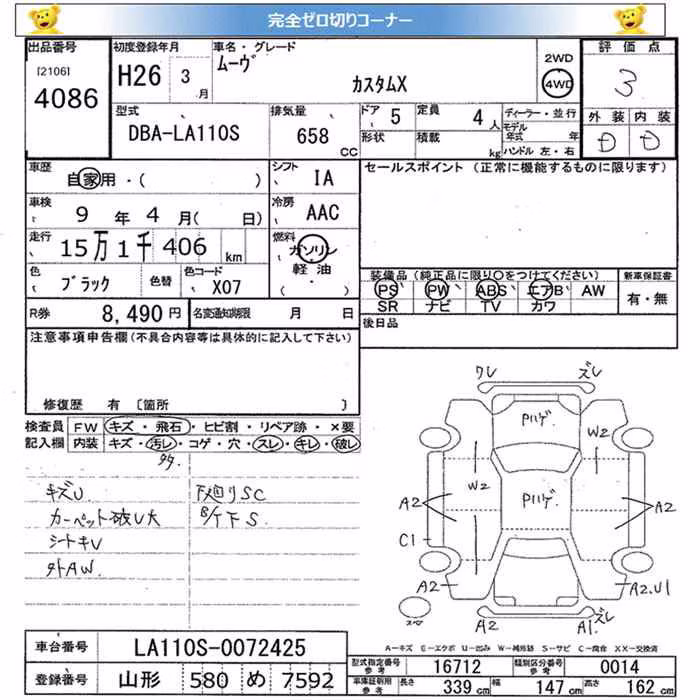 完全ゼロ切りコーナー
出品番号 初度登録年月 車名・グレード 評価点
[2106] 4086
H26 3 月
ムーヴ カスタムX
2WD
4WD
3
型式 DBA-LA110S
排気量 658 CC
ドア 5 定員 4 人
形状 積載 kg
ディーラー・並行
モデル年式 年
ハンドル 左・右
外装 内装
D D
車歴 自家用・( )
シフト IA
セールスポイント (正常に機能するものに限ります)
車検 9 年 4 月( 日)
冷房 AAC
走行 15万1千406 km
燃料 ガソリン 軽油 ・( )
色 ブラック 色替 色コード X07
装備品 (純正品に限り○をつけてください) 新車保証書
PS PW ABS エアB AW
SR ナビ TV カワ
有・無
R券 8,490 円 名変通知期限 月 日
後日品
注意事項申告欄(不具合内容等は具体的に記入して下さい)
修復歴 有 [箇所 ]
検査員記入欄
FW キズ・飛石・ヒビ割・リペア跡・×要
内装 キズ・汚レ・コゲ・穴・スレ・キレ・破レ
タケ
キズU 下廻りSC
カーペット破U大 B/T F S
シートキU
外AW
ワレ ズレ
Pハゲ
W2
W2
Pハゲ
A2 A2
C1
A2 A2.U1
A2 A1ズレ
A-キズ E-エクボ U-凹み W-補修跡 S-サビ C-腐食 XX-交換済
車台番号 LA110S-0072425
登録番号 山形 580 め 7592
型式指定番号 参考 16712 類別区分番号 参考 0014
車庫証明用 参考 長さ 339 cm 幅 147 cm 高さ 162 cm